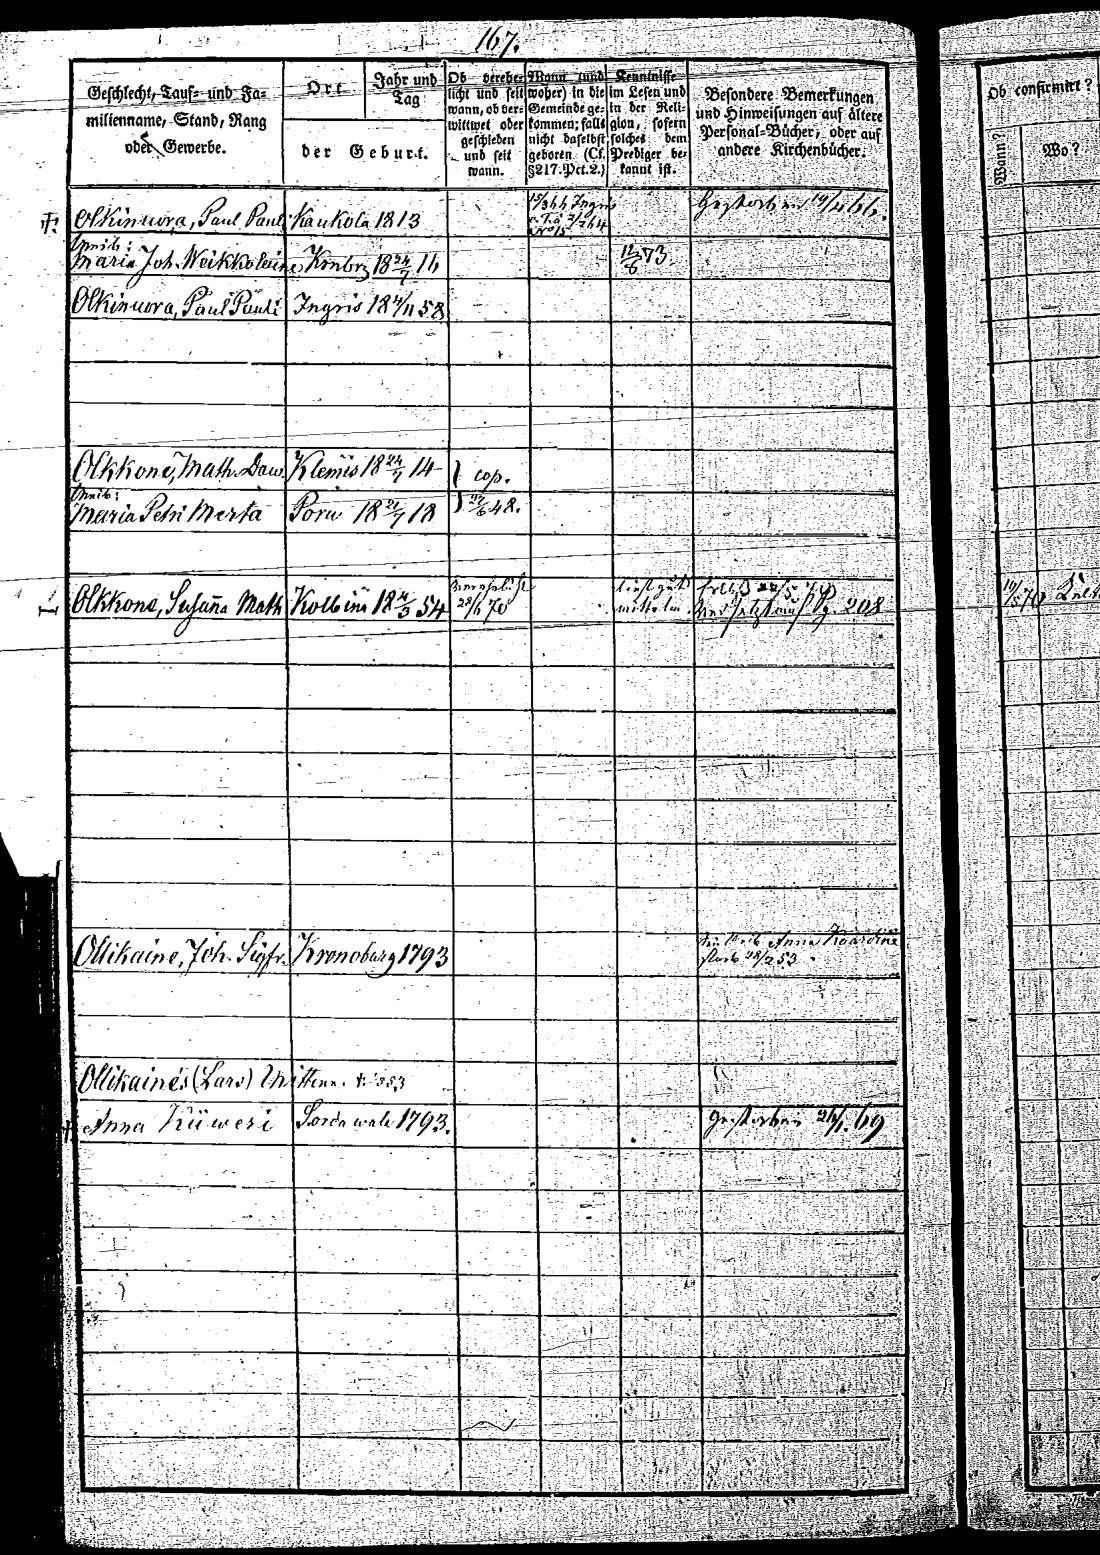 167.
Geschlecht, Tauf- und Fa-
milienname, Stand, Rang
oder Gewerbe.
Ort
Jahr und
Tag
der Geburt.
Ob verehe-
licht und seit
wann, ob ver-
wittwet oder
geschieden
und seit
wann.
Wann (und
woher) in die
Gemeinde ge-
kommen; falls
nicht daselbst
geboren (Cf.
§217. Pct. 2.)
Kenntnisse
im Lesen und
in der Reli-
gion, sofern
solches dem
Prediger be-
kannt ist.
Besondere Bemerkungen
und Hinweisungen auf ältere
Personal-Bücher, oder auf
andere Kirchenbücher.
Ob confirmirt?
Wann?
Wo?
Olkinuora, Paul Pauli Kaukola 1813 Gestorben 19/4 66.
Weib:
Maria Joh. Weikkolaine Kronbrg 18 24/7 16 12/6 73
Olkinuora, Paul Pauli Ingris 18 4/11 58
Olkkone, Math. Daw. Klemis 18 24/7 14 cop.
Weib:
Maria Petri Merta Poru 18 21/7 18 48.
Olkkone, Susana Math Kolbina 18 4/3 54 23/6 70 208
Ollikaine, Joh. Sigfr. Kronoburg 1793 Weib Anna
starb 28/2 53
Ollikaines (Lars) Wittwe.
Anna Küweri Sordawala 1793. Gestorben 26/1. 69